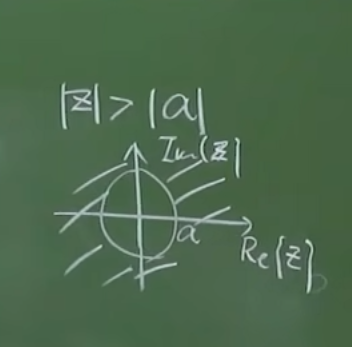 |z| > |a|
Im{z}
a
Re{z}